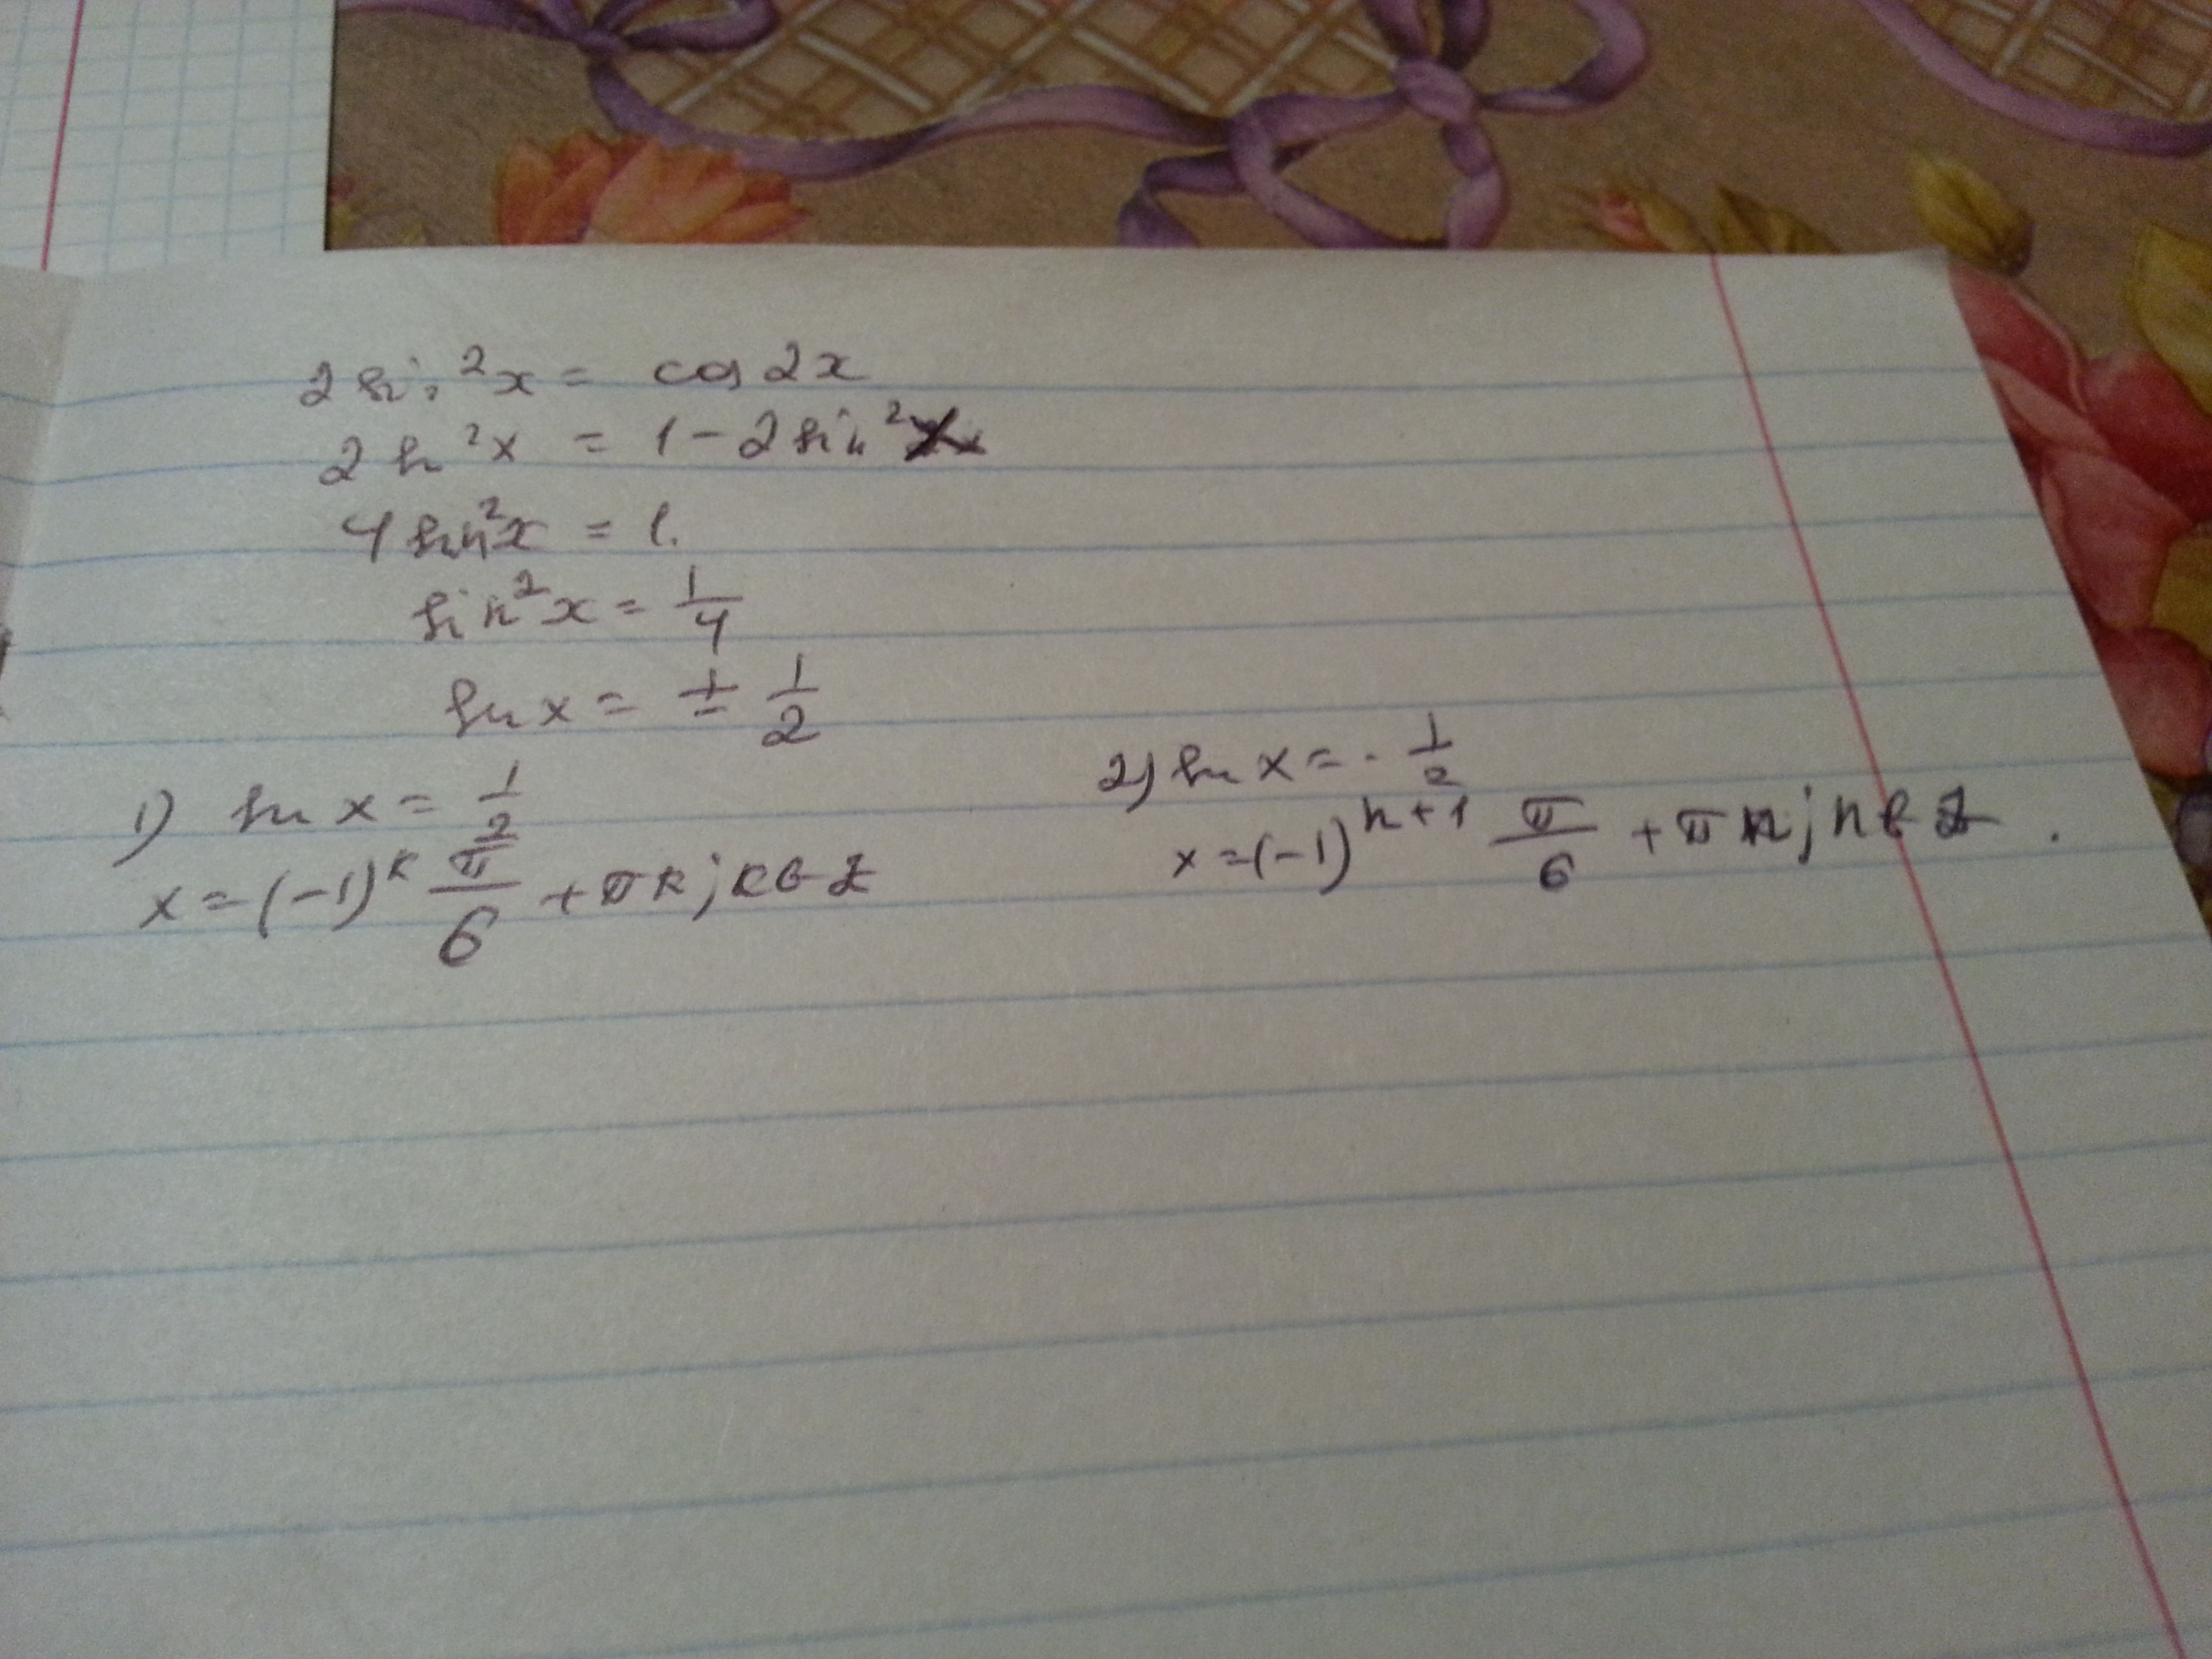 2 sin ²x = cos 2x
2 sin ²x = 1 - 2 sin ² x
4 sin²x = 1.
sin²x = 1/4
sin x = ± 1/2
1) sin x = 1/2
x = (-1)^k π/6 + πk; k ∈ Z
2) sin x = - 1/2
x = (-1)^n+1 π/6 + πn; n ∈ Z.